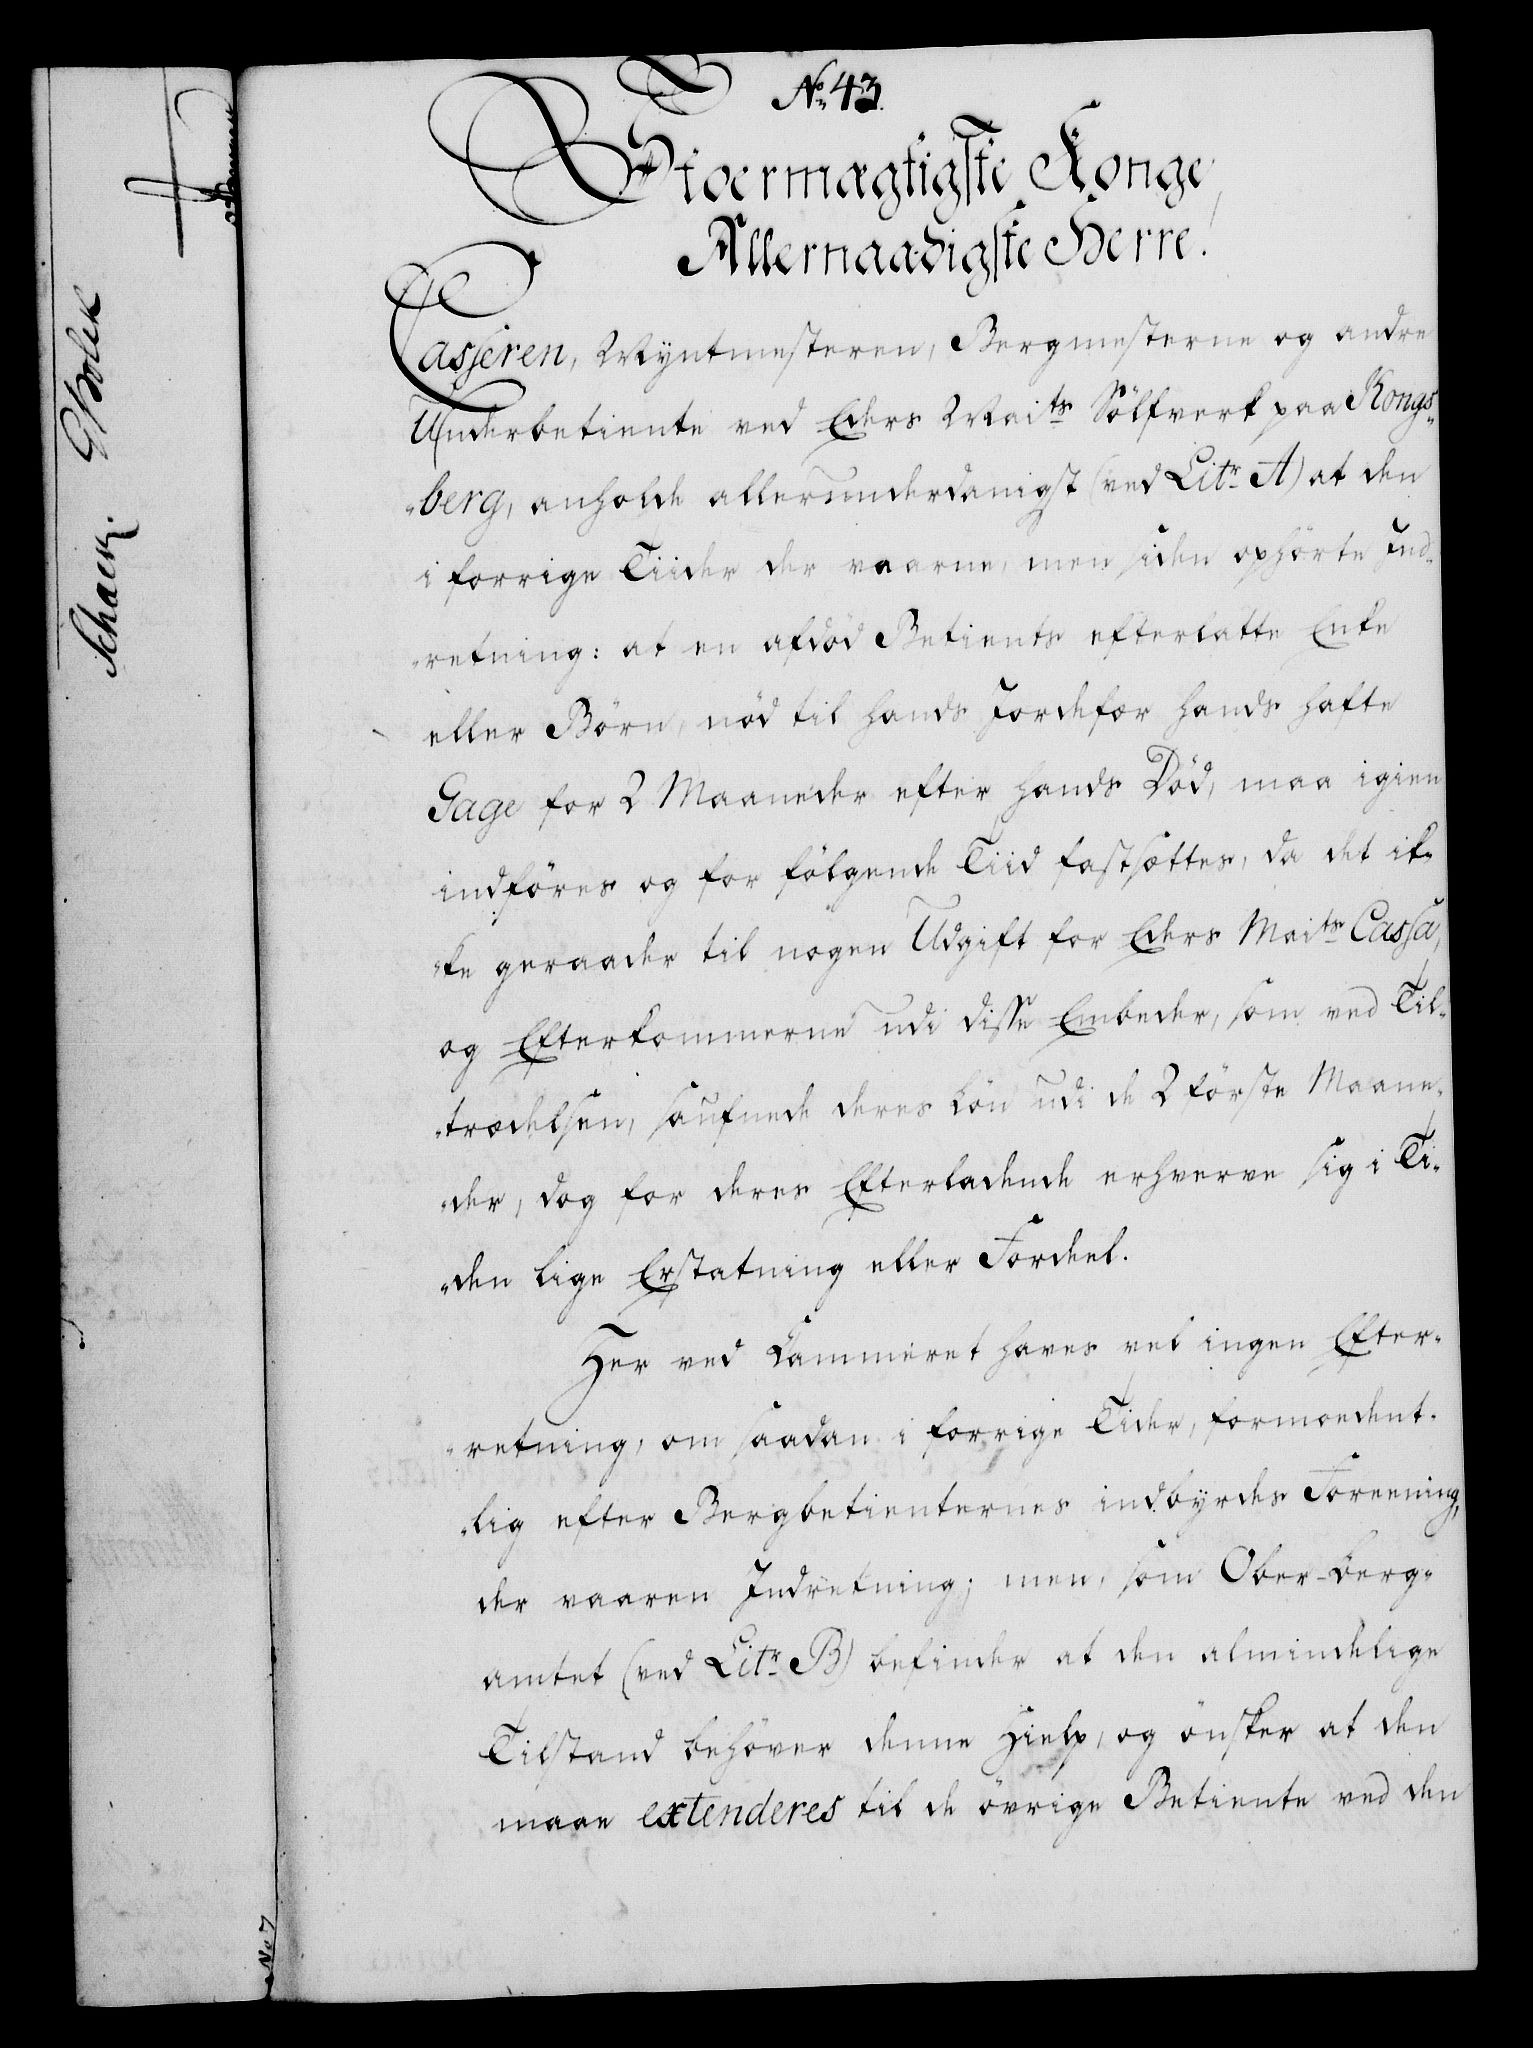 No. 43.
Stoermægtigste Konge,
Allernaadigste Herre!
Casseren, Myntmesteren, Bergmesterne og andre
Underbetiente ved Eders Maits Sölfverk paa Kongs-
-berg, anholde allerunderdanigst (ved Litr A) at den
i forrige Tiider der vaarne, men siden ophörte Ind-
-retning: at en afdöd Betients efterlatte Enke
eller Börn, nöd til hands Jordefær hands hafte
Gage for 2 Maaneder efter hands Död, maa igien
indföres og for fölgende Tiid fastsættes, da det ik-
-ke geraader til nogen Udgift for Eders Maits Cassa,
og Efterkommerne udi disse Embeder, som ved Til-
-trædelsen, saufnede deres Lön udi de 2 förste Maane-
-der, dog for deres Efterladende erhverve sig i Ti-
-den lige Erstatning eller Fordeel.
Her ved Cammeret haves vel ingen Efter-
-retning, om saadan i forrige Tider, formoedent-
-lig efter Bergbetienternes indbyrdes Foreening,
der vaaren Indretning; men, som Ober-Berg-
amtet (ved Litr B) befinder at den almindelige
Tilstand behöver denne Hielp, og önsker at den
maae extenderes til de övrige Betiente ved den
Schack.
No 7